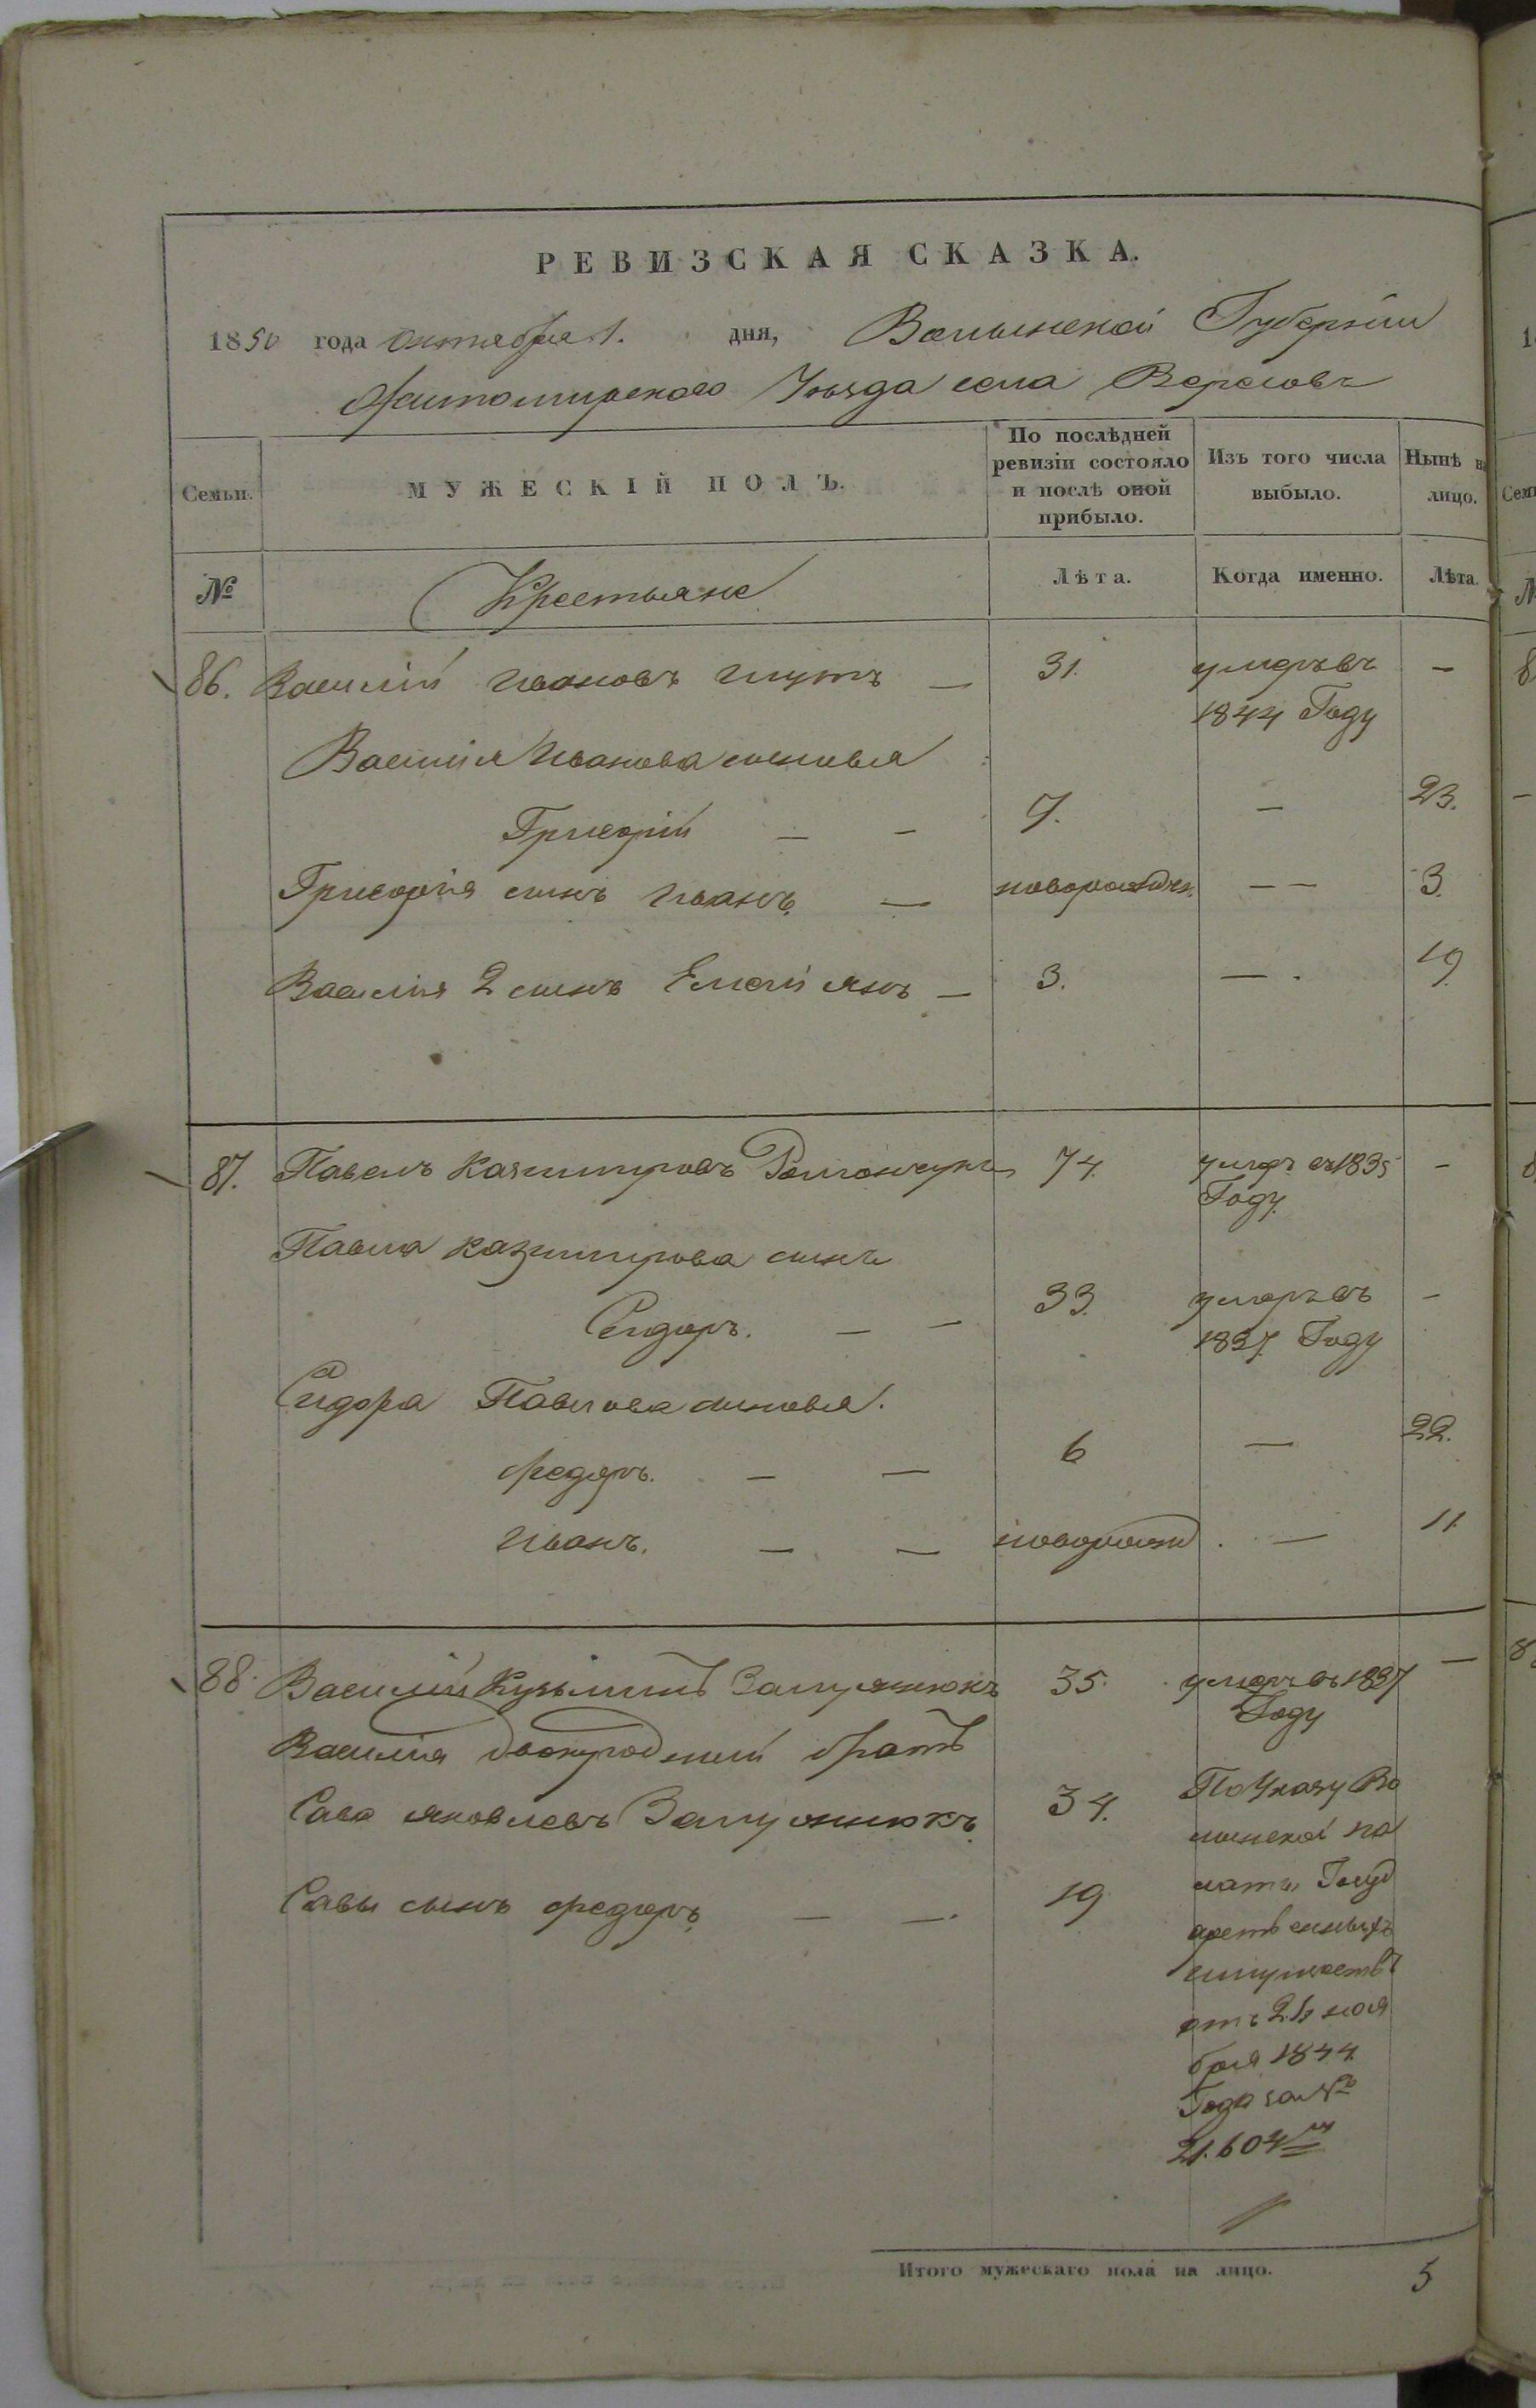 РЕВИЗСКАЯ СКАЗКА.
1850 года Октября 1. дня, Волынской Губерніи
Житомирского Уезда села Вересовъ
Семьи. МУЖЕСКІЙ ПОЛЪ. По послѣдней ревизіи состояло и послѣ оной прибыло. Изъ того числа выбыло. Нынѣ на лицо.
№ Крестьяне Лѣта. Когда именно. Лѣта.
86. Василій Ивановъ — 31. умеръ въ —
1844 Году
Василія Иванова сыновья
Григорій — — 7. — 23.
Григорія сынъ Иванъ — новорожден. — — 3.
Василія 2 сынъ Емелиянъ — 3. — . 19
87. Павелъ Казимировъ Романчукъ 74. умеръ въ 1835 —
Году
Павла Казимирова сынъ
Сидоръ. — — 33. умеръ въ —
1837 Году
Сидора Павлова сыновья.
Федоръ. — — 6 — 22.
Иванъ. — — новорожд. — 11.
88. Василій Кузьминъ 35. умеръ въ 1837 —
Году
Василія двоюродный братъ
Сава Яковлевъ 34. По Указу Во
лынской па
Савы сынъ Федоръ — — 19 латы Госуд
арственныхъ
имуществъ
отъ 21 ноя
бря 1844
Года за №
21.604м
Итого мужескаго пола на лицо. 5